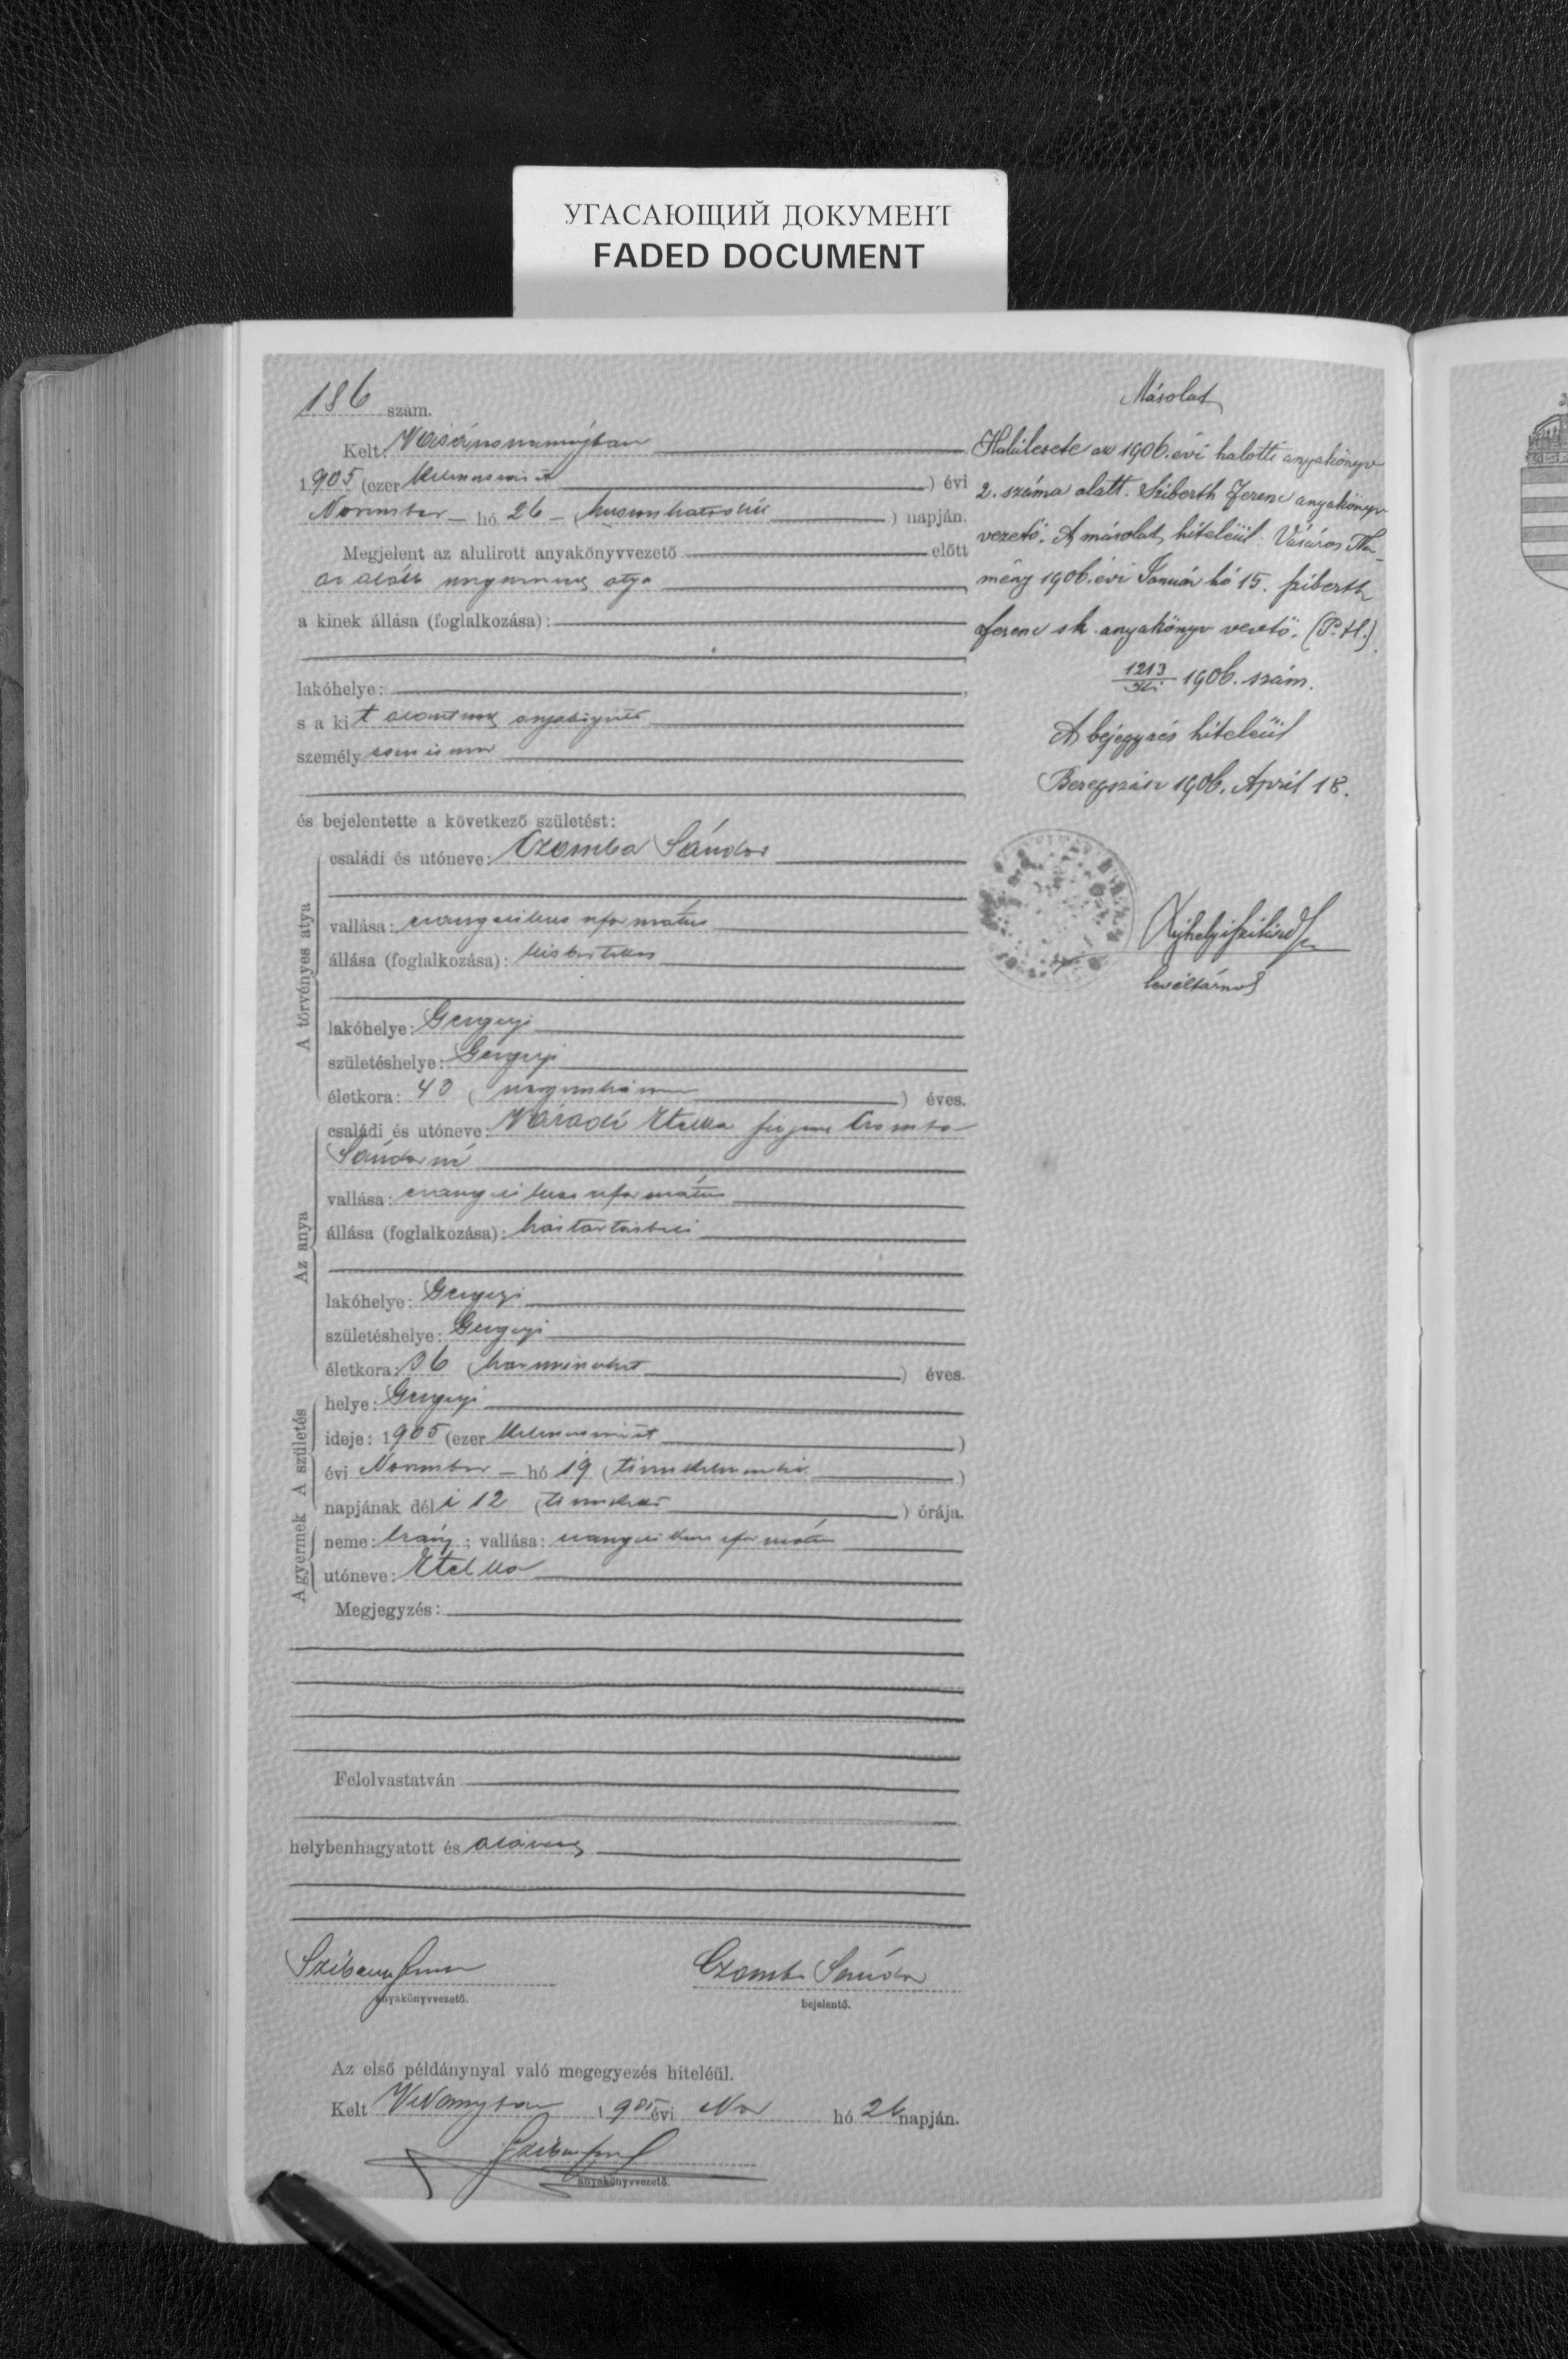 УГАСАЮЩИЙ ДОКУМЕНТ
FADED DOCUMENT
186 szám.
Kelt: Vásárosnaményban
1905 (ezerkilenczszázöt) évi
November hó 26 (huszonhatodik) napján.
Megjelent az alulirott anyakönyvvezető előtt
az alább megnevezett atya
a kinek állása (foglalkozása):
lakóhelye:
s a kit alantirott anyakönyvvezető
személyesen ismer
és bejelentette a következő születést:
A törvényes atya
családi és utóneve: Czomba Sándor
vallása: evangelikus református
állása (foglalkozása): kisbirtokos
lakóhelye: Gergelyi
születéshelye: Gergelyi
életkora: 43 (negyvenhárom) éves.
Az anya
családi és utóneve: Váradi Etelka férjezett Czomba
Sándorné
vallása: evangelikus református
állása (foglalkozása): háztartásbeli
lakóhelye: Gergelyi
születéshelye: Gergelyi
életkora: 36 (harminczhat) éves.
A születés
helye: Gergelyi
ideje: 1905 (ezerkilenczszázöt)
évi November hó 19 (tizenkilenczedik)
napjának déli 12 (tizenkettő) órája.
A gyermek
neme: leány; vallása: evangelikus református
utóneve: Etelka
Megjegyzés:
Felolvastatván
helybenhagyatott és aláiratott
Sziberth Ferencz
anyakönyvvezető.
Czomba Sándor
bejelentő.
Az első példánynyal való megegyezés hiteléül.
Kelt VNaményban 1905 évi Nov hó 26 napján.
Sziberth Ferencz
anyakönyvvezető.
Másolat
Halálesete az 1906. évi halotti anyakönyv
2. száma alatt. Sziberth Ferenc anyakönyv
vezető. A másolat hiteléül. Vásáros Na-
mény 1906. évi Január hó 15. Sziberth
Ferenc sk. anyakönyv vezető. (P. H.)
1213 1906. szám.
A bejegyzés hiteléül
Beregszász 1906. April 18.
levéltárnok